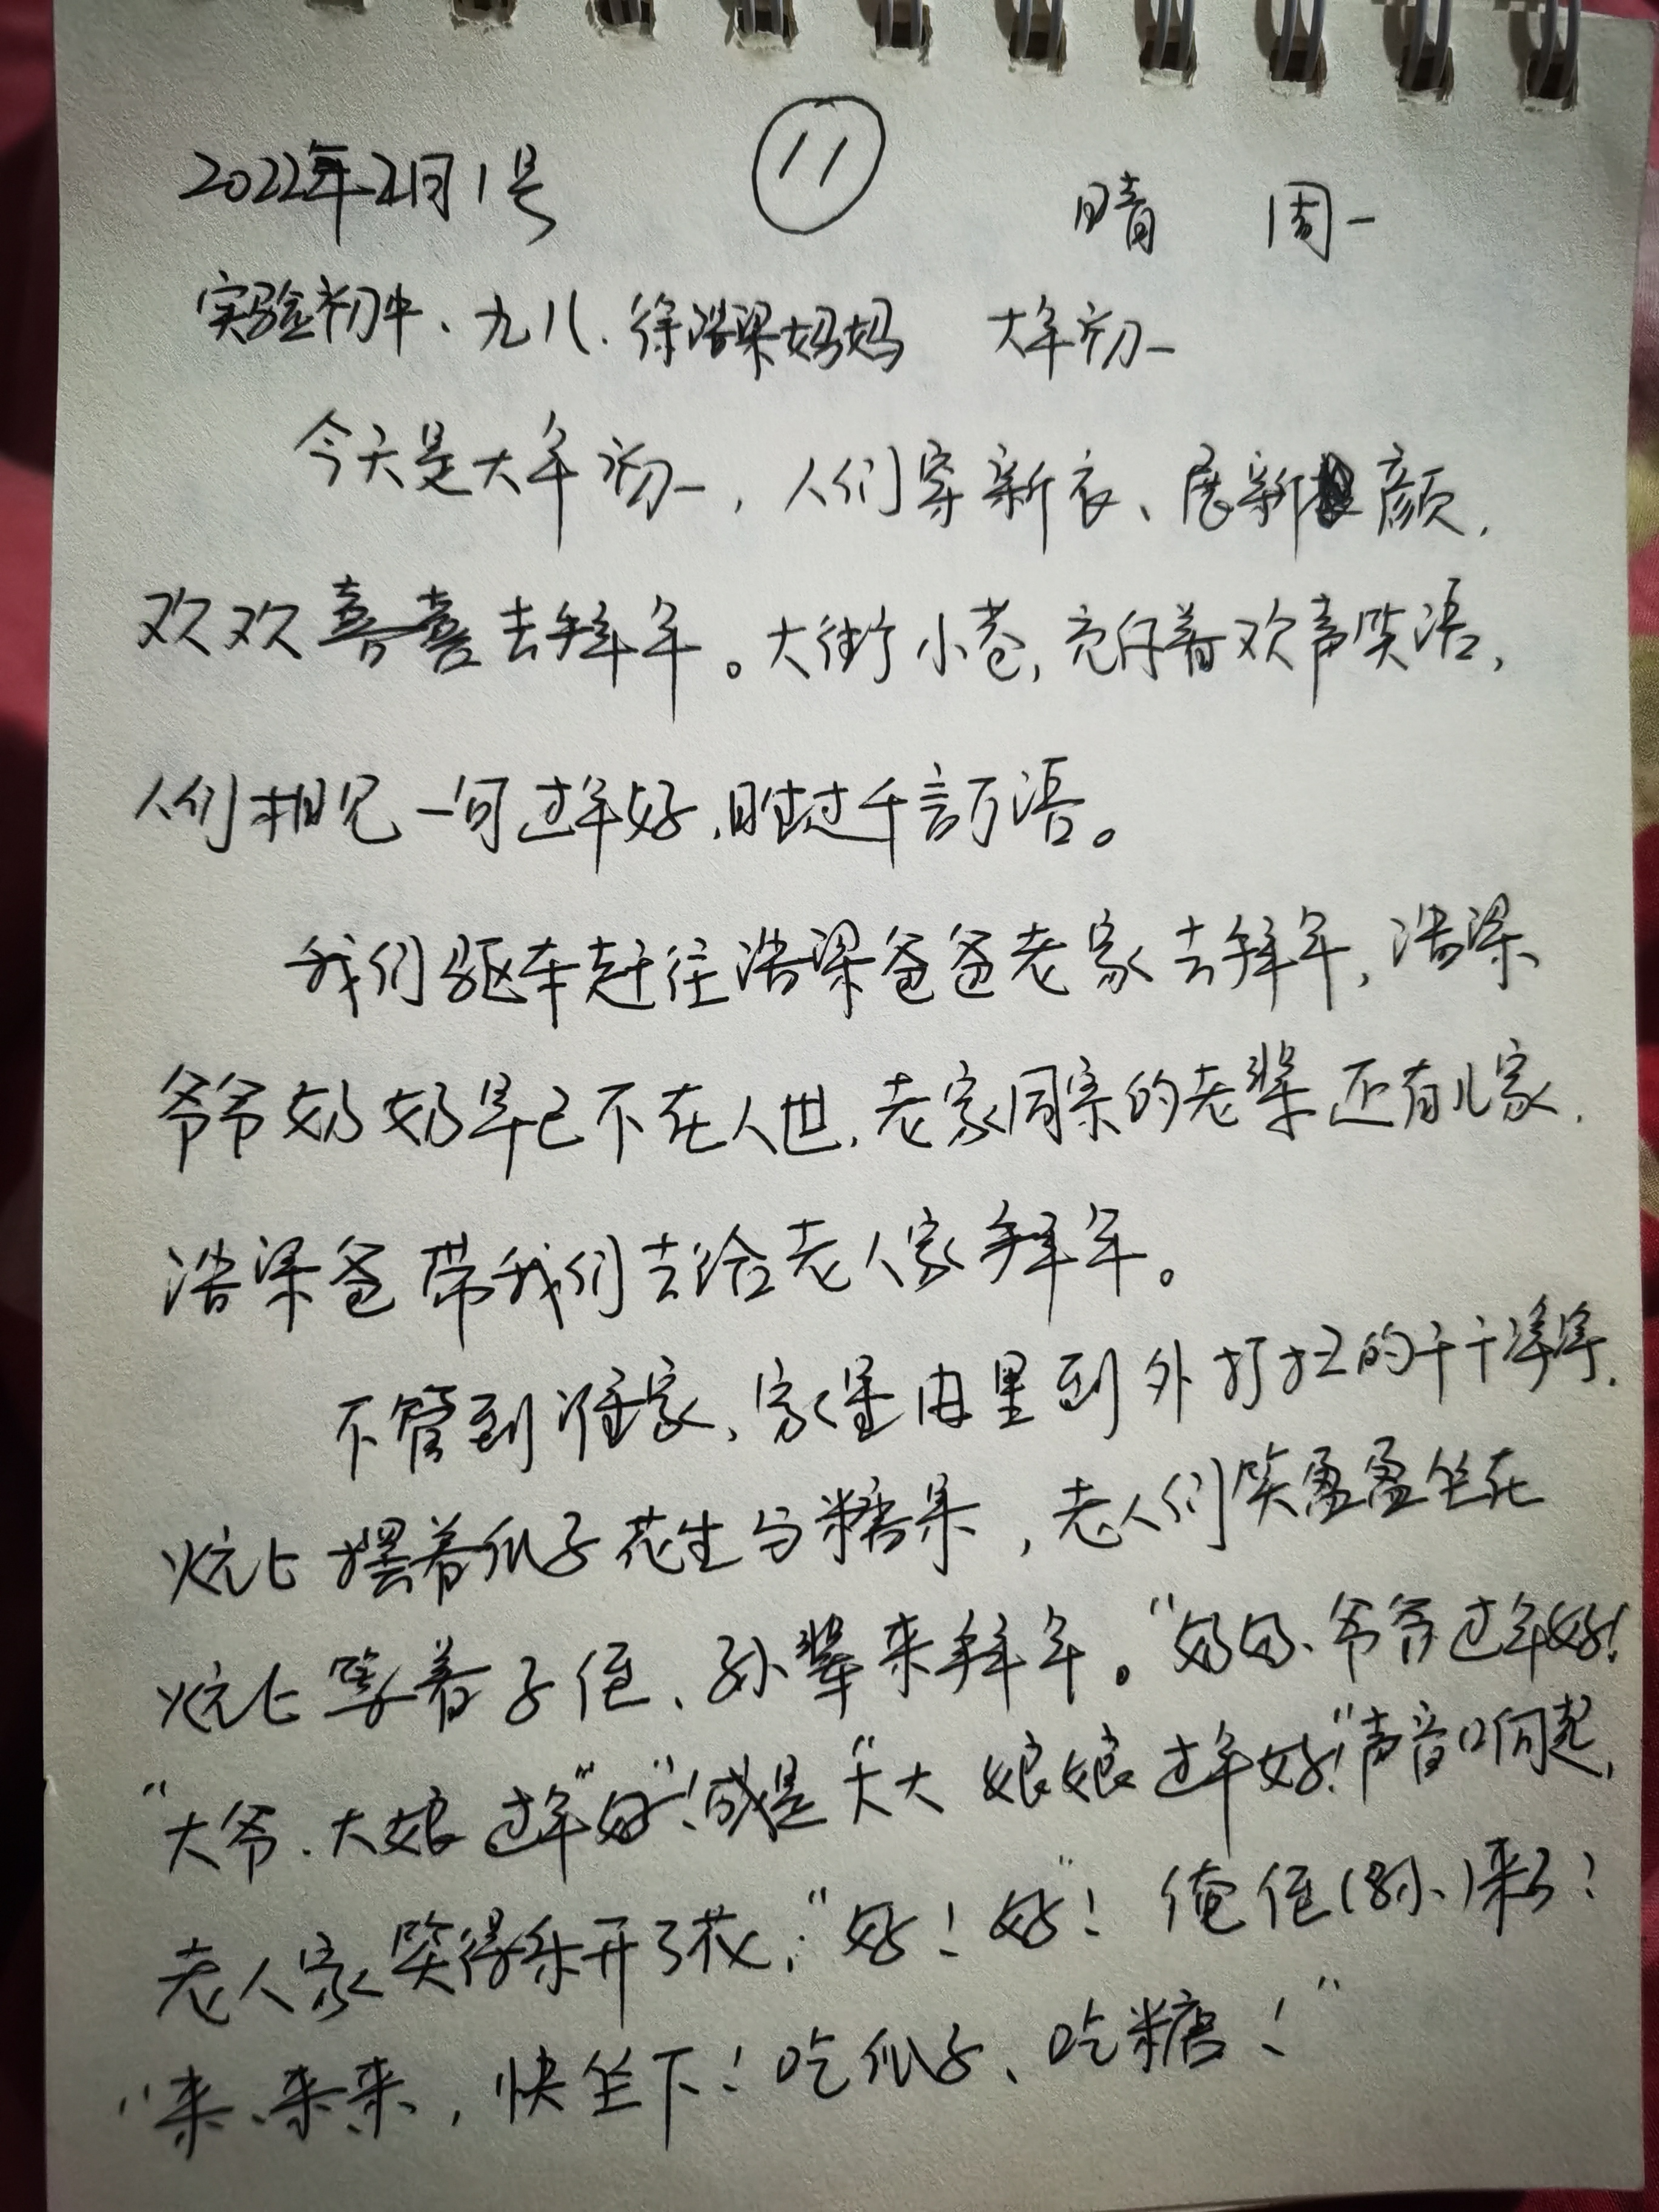 2022年2月1号 11 晴 周一
实验初中、九八.徐浩梁妈妈 大年初一
今天是大年初一，人们穿新衣、展新颜，
欢欢喜喜去拜年。大街小巷，充仔着欢声笑语，
人们相见一句过年好，胜过千言万语。
我们驱车赶往浩梁爸爸老家去拜年，浩梁
爷爷奶奶早已不在人世，老家同宗的老辈还有几家，
浩梁爸带我们去给老人家拜年。
不管到谁家，家里由里到外打扫的干干净净，
炕上摆着瓜子花生与糖果，老人们笑盈盈坐在
炕上等着子侄、孙辈来拜年。“奶奶、爷爷过年好！
“大爷.大娘过年“好”！或是“大大 娘娘过年好！”声音响起，
老人家笑得乐开了花，“好！好”！俺侄（孙）来了！
“来、来来，快坐下！吃瓜子、吃糖！”